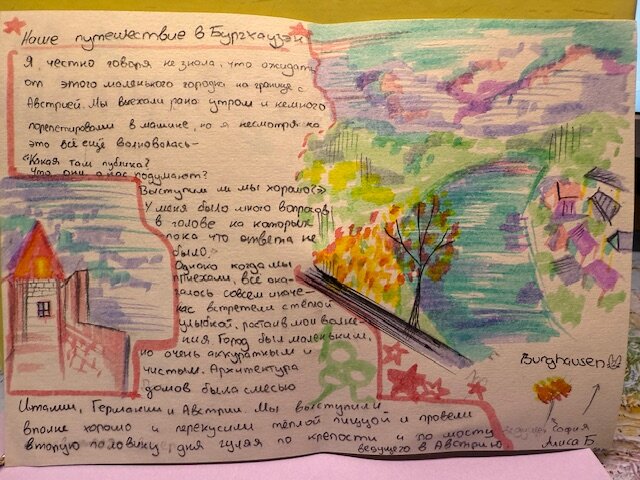 Наше путешествие в Бургхаузен
Я, честно говоря не знала, что ожидать
от этого маленького городка на границе с
Австрией. Мы выехали рано утром и немного
порепетировали в машине, но я несмотря на
это всё ещё волновалась–
"Какая там публика?
Что они о нас подумают?
Выступим ли мы хорошо?»
У меня было много вопросов
в голове на которых
пока что ответа не
было.
Однако когда мы
приехали, всё ока-
залось совсем иначе–
нас встретели с тёплой
улыбкой, растаяв мои волне-
ния Город был маленьким,
но очень аккуратным и
чистым. Архитектура
домов была смесью
Италии, Германии и Австрии. Мы выступили
вполне хорошо и перекусили тёплой пиццой и провели
вторую половину дня гуляя по крепости и по мосту
ведущего в Австрию
Burghausen
София
Алиса Б.